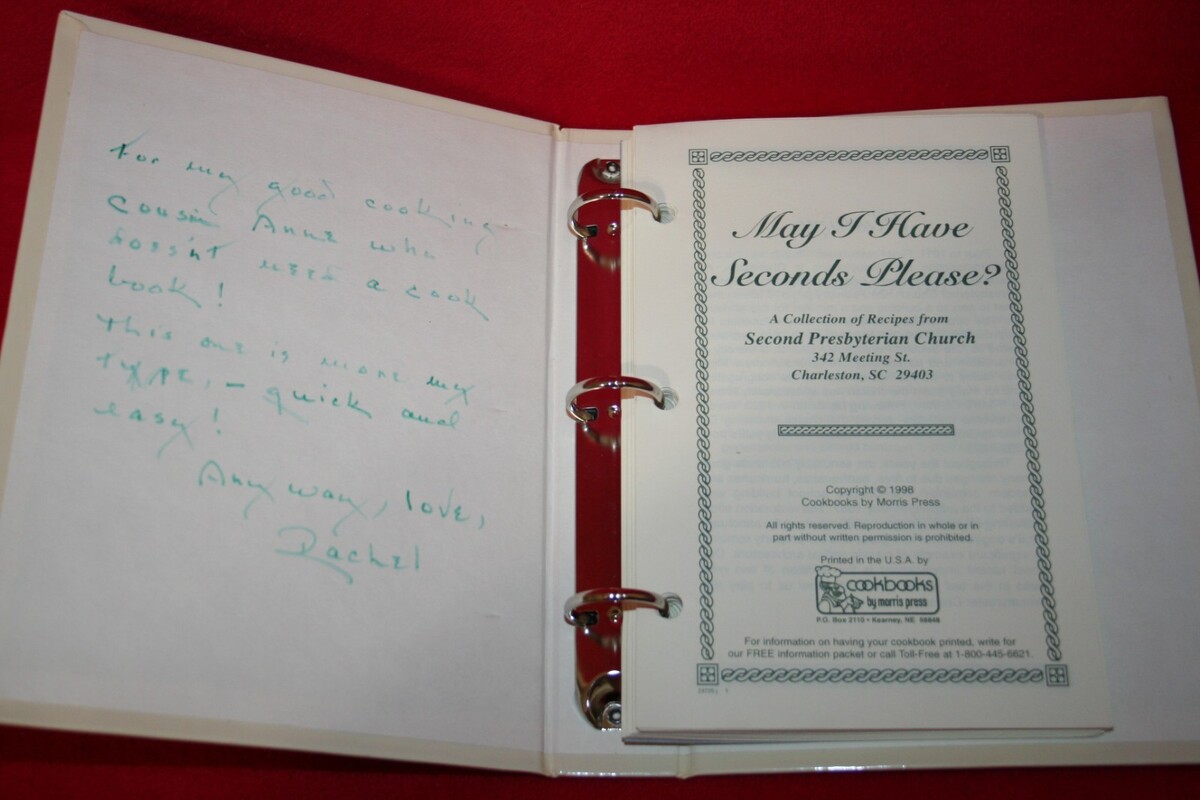 For my good cooking
cousin Anne who
doesn't need a cook
book!
This one is more my
type, - quick and
easy!
Any way, love,
Rachel
May I Have
Seconds Please?
A Collection of Recipes from
Second Presbyterian Church
342 Meeting St.
Charleston, SC 29403
Copyright © 1998
Cookbooks by Morris Press
All rights reserved. Reproduction in whole or in
part without written permission is prohibited.
Printed in the U.S.A. by
cookbooks
by morris press
P.O. Box 2110 • Kearney, NE 68848
For information on having your cookbook printed, write for
our FREE information packet or call Toll-Free at 1-800-445-6621.